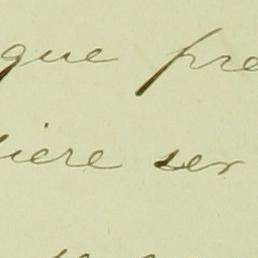 que pre
iere ser